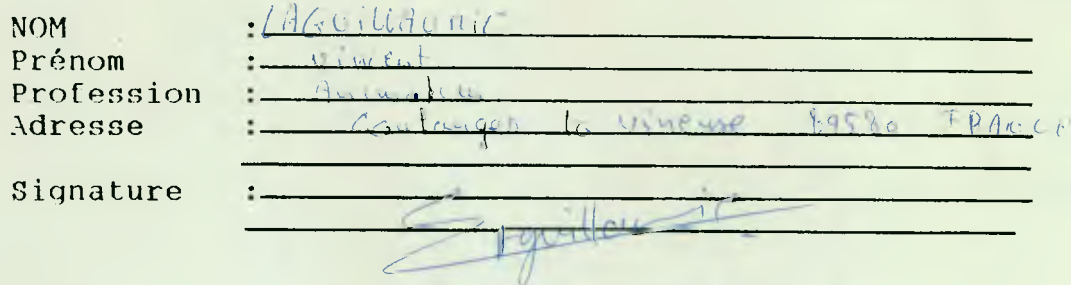 NOM : LAGUILLAUMIE
Prénom : Vincent
Profession : Animateur
Adresse : Coulanges la Vineuse 89580 FRANCE
Signature :
Laguillaumie